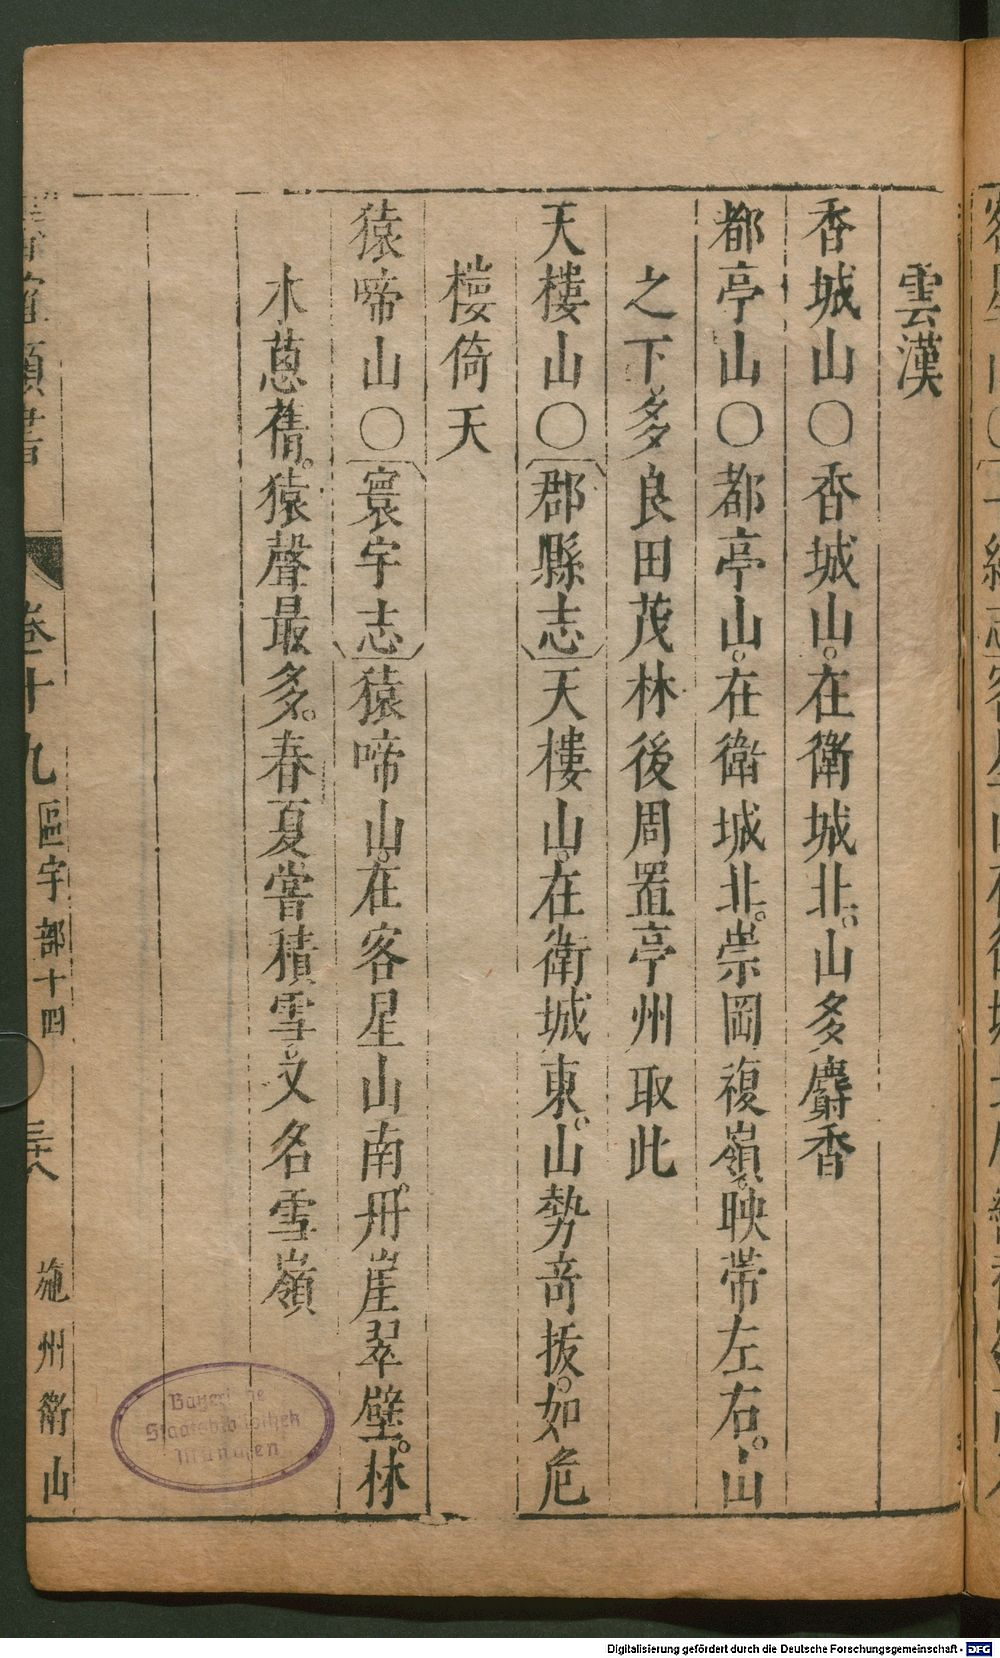 雲漢
香城山○香城山。在衛城北。山多麝香
都亭山○都亭山。在衛城北。崇岡複嶺。映帶左右。山
之下多良田茂林後周置亭州取此
天樓山○〔郡縣志〕天樓山。在衛城東。山勢奇拔。如危
樓倚天
猿啼山○〔寰宇志〕猿啼山。在客星山南。丹崖翠壁。林
木蔥蒨。猿聲最多。春夏嘗積雪。又名雪嶺
卷十九 區宇部十四 三十八 施州衛山
Bayerische
Staatsbibliothek
München
Digitalisierung gefördert durch die Deutsche Forschungsgemeinschaft - DFG